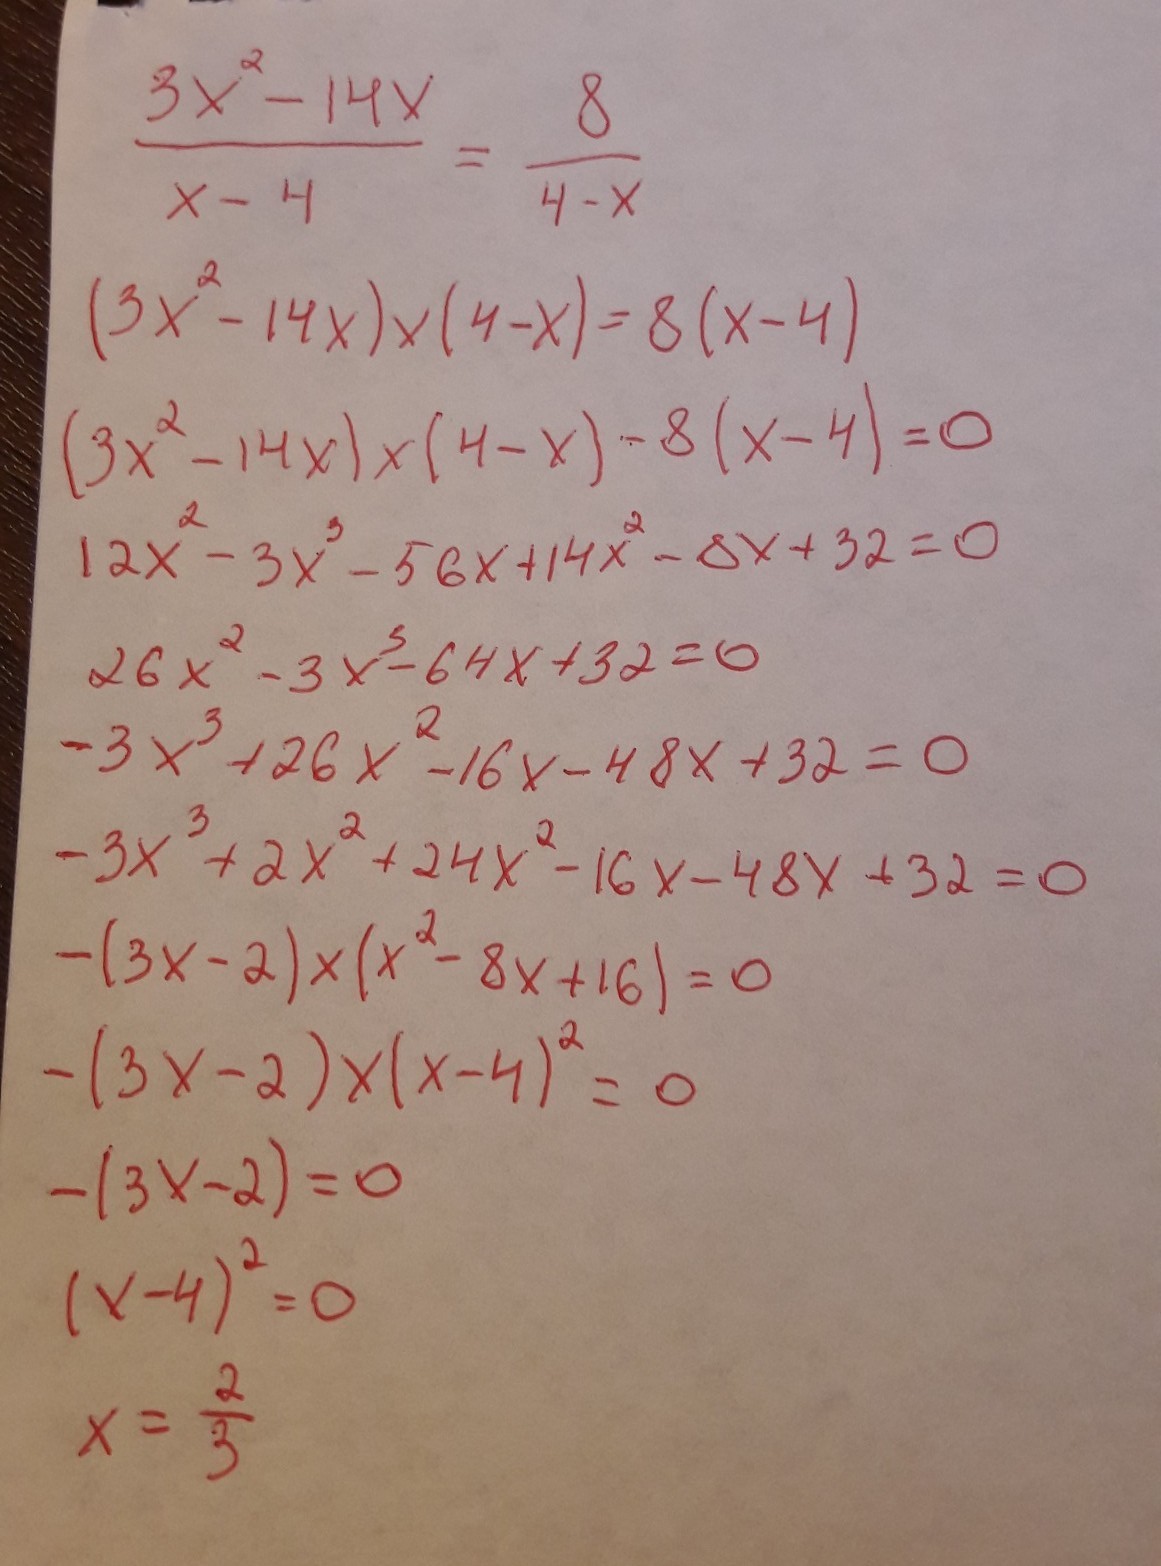 3x² - 14x / x - 4 = 8 / 4 - x
(3x² - 14x) x (4 - x) = 8(x - 4)
(3x² - 14x) x (4 - x) - 8(x - 4) = 0
12x² - 3x³ - 56x + 14x² - 8x + 32 = 0
26x² - 3x³ - 64x + 32 = 0
-3x³ + 26x² - 16x - 48x + 32 = 0
-3x³ + 2x² + 24x² - 16x - 48x + 32 = 0
-(3x - 2) x (x² - 8x + 16) = 0
-(3x - 2) x (x - 4)² = 0
-(3x - 2) = 0
(x - 4)² = 0
x = 2/3